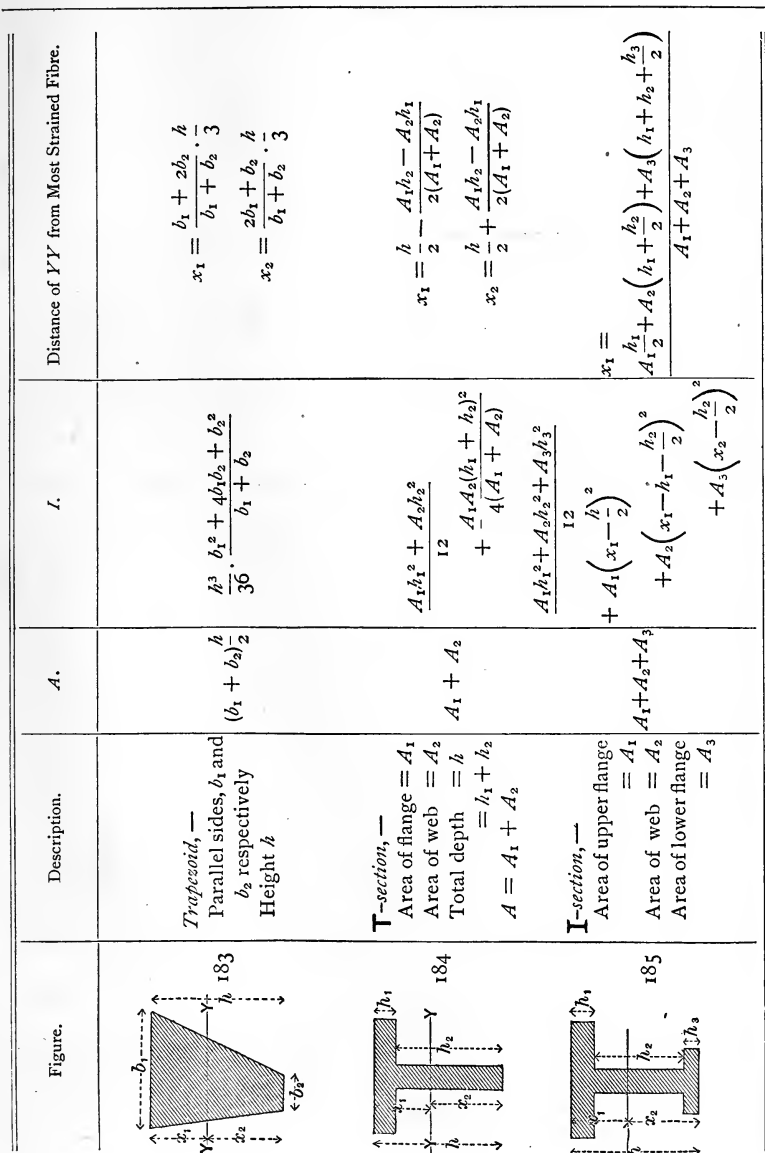 Figure. Description. A. I. Distance of YY from Most Strained Fibre.
b₁
x₁
x₂
Y Y
h
b₂
183
Trapezoid,—
Parallel sides, b₁ and
b₂ respectively
Height h
(b₁ + b₂) h/2
h³/36 · (b₁² + 4b₁b₂ + b₂²)/(b₁ + b₂)
x₁ = (b₁ + 2b₂)/(b₁ + b₂) · h/3
x₂ = (2b₁ + b₂)/(b₁ + b₂) · h/3
h₁
x₁
h₂
Y Y
x₂
h
184
T-section,—
Area of flange = A₁
Area of web = A₂
Total depth = h
= h₁ + h₂
A = A₁ + A₂
A₁ + A₂
(A₁h₁² + A₂h₂²)/12
+ A₁A₂(h₁ + h₂)²/4(A₁ + A₂)
x₁ = h/2 − (A₁h₂ − A₂h₁)/2(A₁ + A₂)
x₂ = h/2 + (A₁h₂ − A₂h₁)/2(A₁ + A₂)
h₁
x₁
h₂
x₂
h₃
h
185
I-section,—
Area of upper flange
= A₁
Area of web = A₂
Area of lower flange
= A₃
A₁+A₂+A₃
(A₁h₁²+A₂h₂²+A₃h₃²)/12
+ A₁(x₁−h/2)²
+ A₂(x₁−h₁−h₂/2)²
+ A₃(x₂−h₂/2)²
x₁ =
(A₁h₁/2+A₂(h₁+h₂/2)+A₃(h₁+h₂+h₃/2))/(A₁+A₂+A₃)